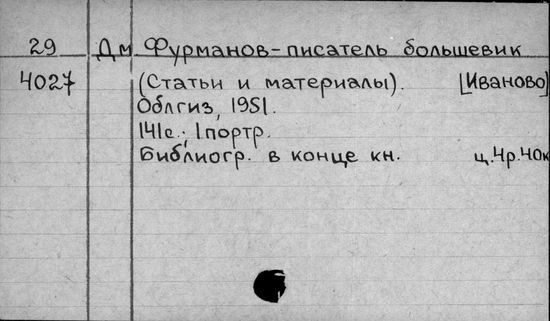 29 Дм. Фурманов-писатель большевик
4027 (Статьи и материалы). [Иваново]
Облгиз, 1951.
141с.; 1портр.
Библиогр. в конце кн. ц.4р.40к